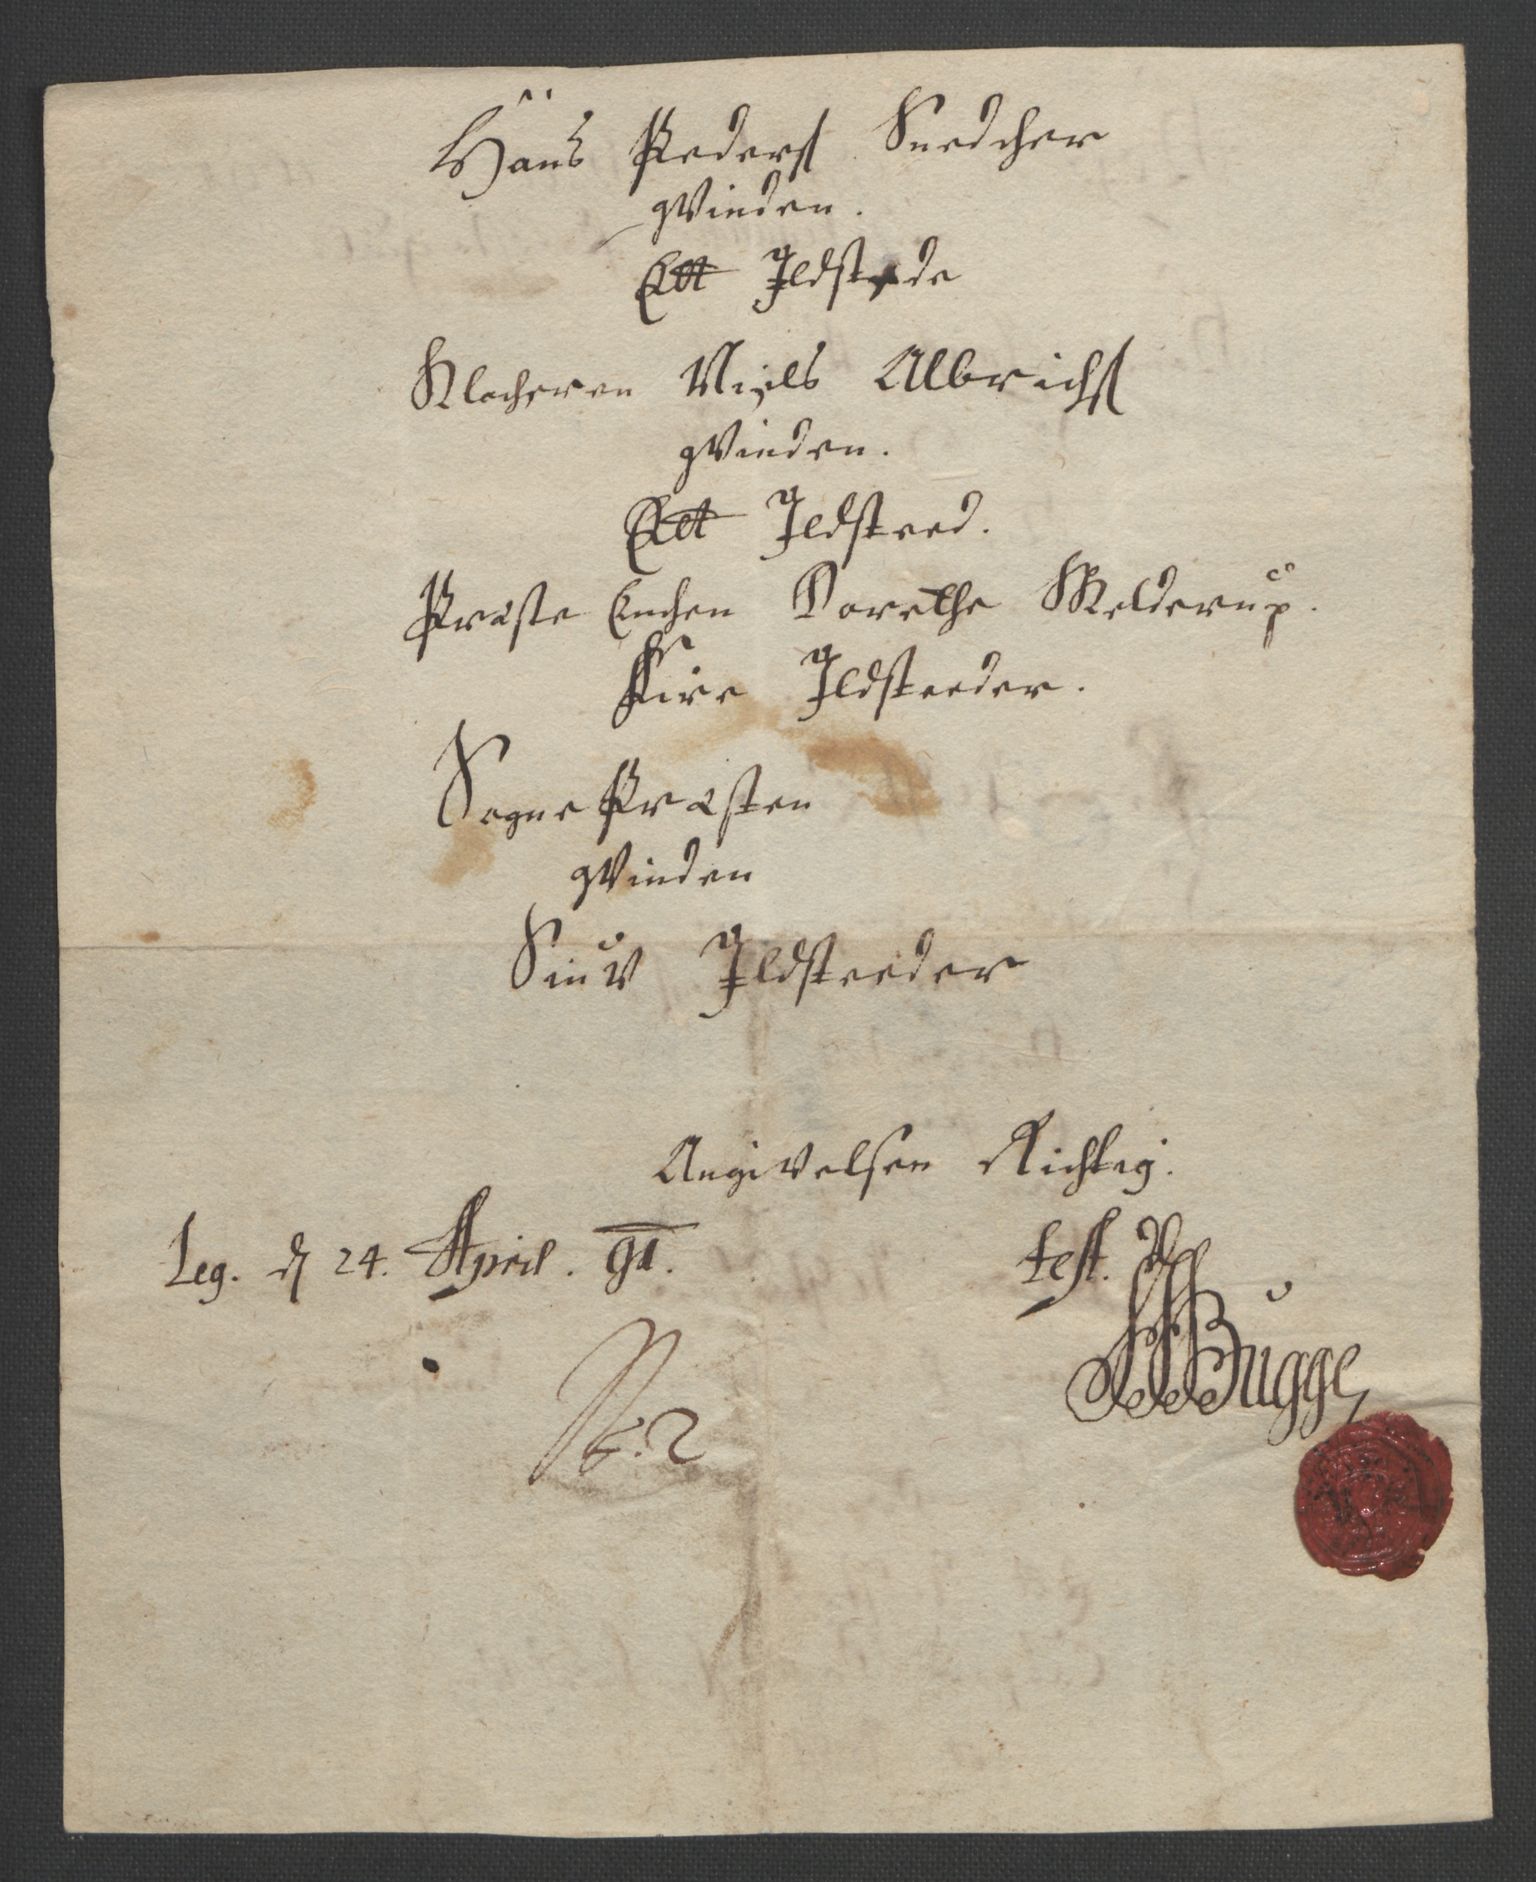 Hans Peders Snedcher
qvinden.
Ett Ildstede
Klocheren Niels Albrichs
qvinden.
Ett Ildsteed.
Præste Enchen Dorethe Melderup.
Fire Ildsteeder.
Sogne Præsten
qvinden
Siuv Ildsteeder
Angivelsen Richtig.
Leg. d 24. April. 91. test.
Bugge
No. 2